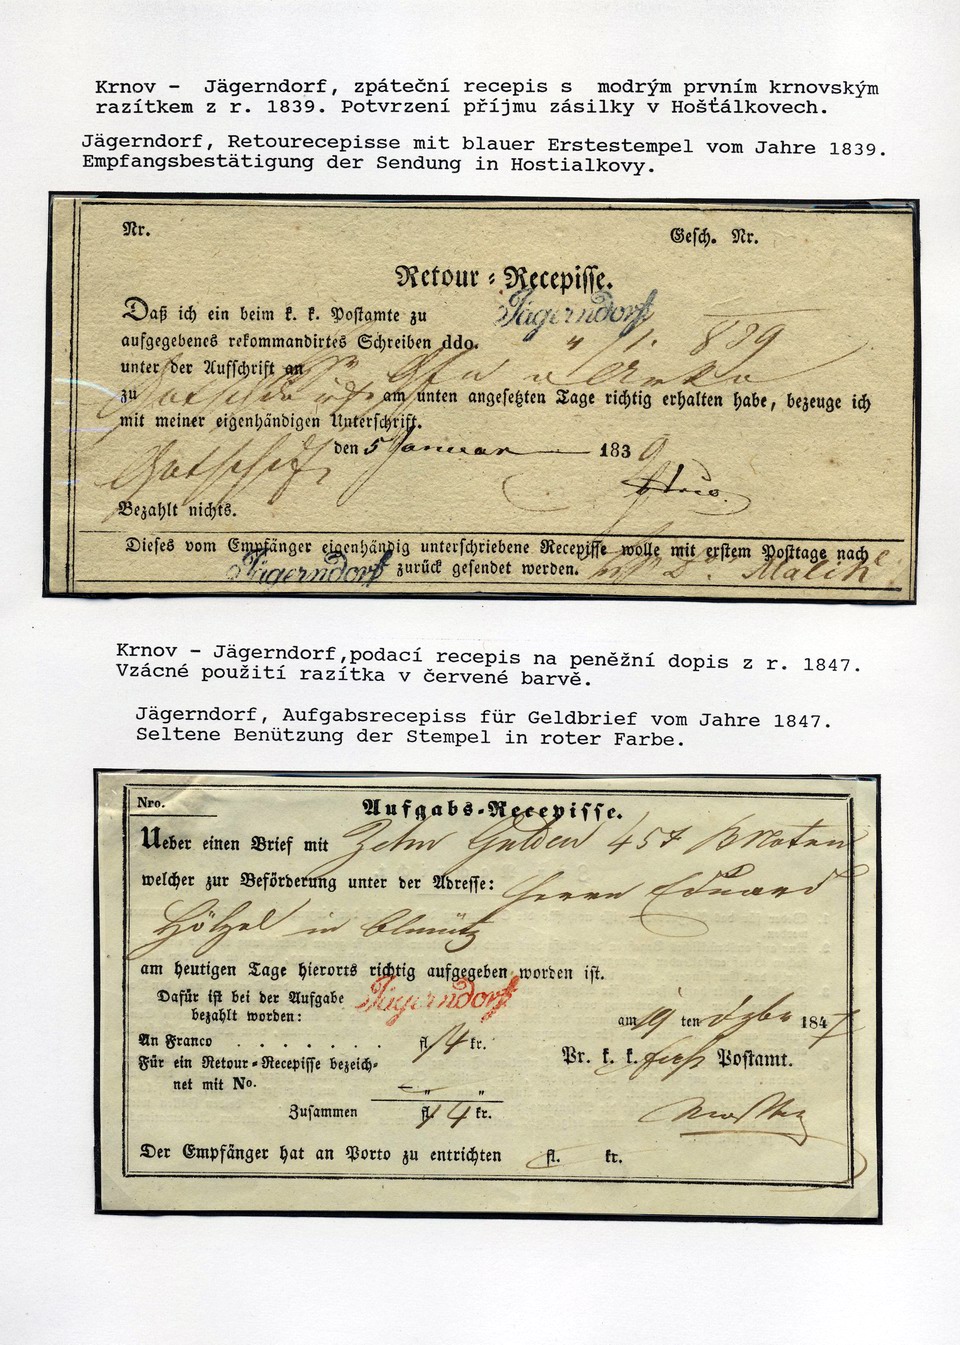 Krnov - Jägerndorf, zpáteční recepis s modrým prvním krnovským
razítkem z r. 1839. Potvrzení příjmu zásilky v Hošťálkovech.
Jägerndorf, Retourecepisse mit blauer Erstestempel vom Jahre 1839.
Empfangsbestätigung der Sendung in Hostialkovy.
Nr.
Gesch. Nr.
Retour = Recepisse.
Daß ich ein beim k. k. Postamte zu Jägerndorf
aufgegebenes rekommandirtes Schreiben ddo. 4/1. 839
unter der Aufschrift an
zu am unten angesetzten Tage richtig erhalten habe, bezeuge ich
mit meiner eigenhändigen Unterschrift.
den 5 Januar 1839
Bezahlt nichts.
Dieses vom Empfänger eigenhändig unterschriebene Recepisse wolle mit erstem Posttage nach
Jägerndorf zurück gesendet werden.
Krnov - Jägerndorf,podací recepis na peněžní dopis z r. 1847.
Vzácné použití razítka v červené barvě.
Jägerndorf, Aufgabsrecepiss für Geldbrief vom Jahre 1847.
Seltene Benützung der Stempel in roter Farbe.
Nro.
Aufgabs-Recepisse.
Ueber einen Brief mit Zehn Gulden
welcher zur Beförderung unter der Adresse: Herrn Eduard
Hölzel in Olmütz
am heutigen Tage hierorts richtig aufgegeben worden ist.
Dafür ist bei der Aufgabe Jägerndorf
bezahlt worden:
am 19 ten 1847
An Franco . . . . . . . fl. 14 kr.
Pr. k. k. Postamt.
Für ein Retour=Recepisse bezeich=
net mit No. — " "
Zusammen fl. 14 kr.
Der Empfänger hat an Porto zu entrichten fl. kr.